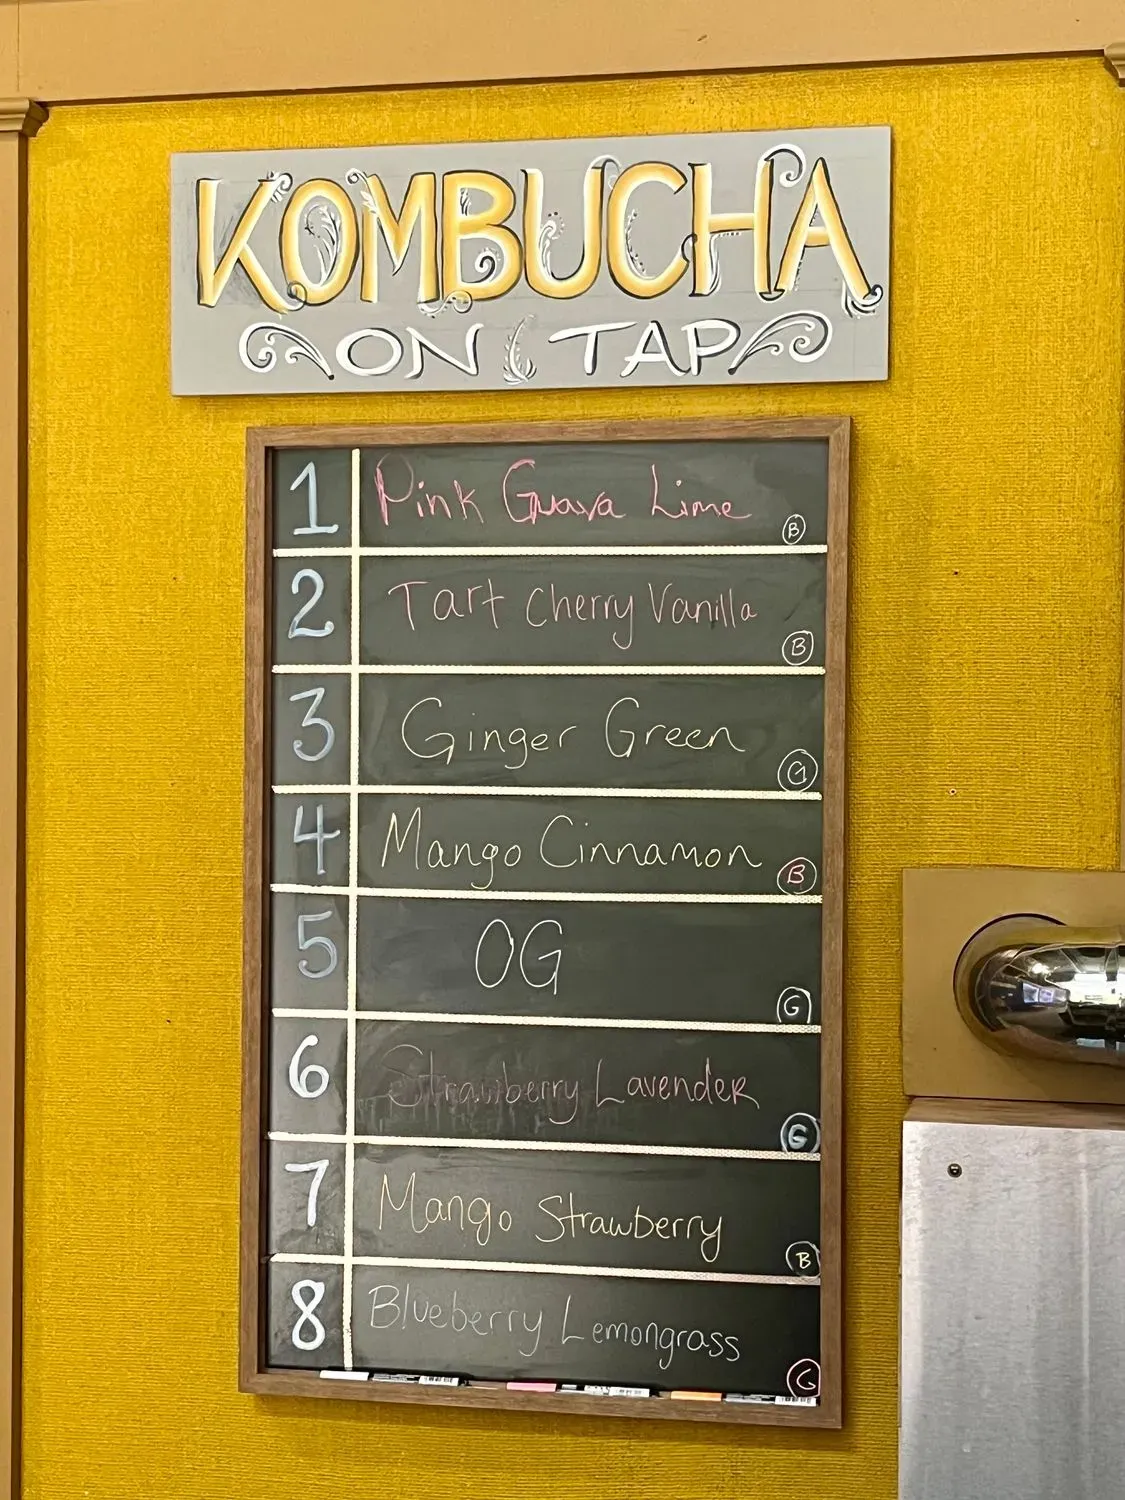 KOMBUCHA
ON TAP
1 Pink Guava Lime B
2 Tart Cherry Vanilla B
3 Ginger Green G
4 Mango Cinnamon B
5 OG G
6 Strawberry Lavender G
7 Mango Strawberry B
8 Blueberry Lemongrass G